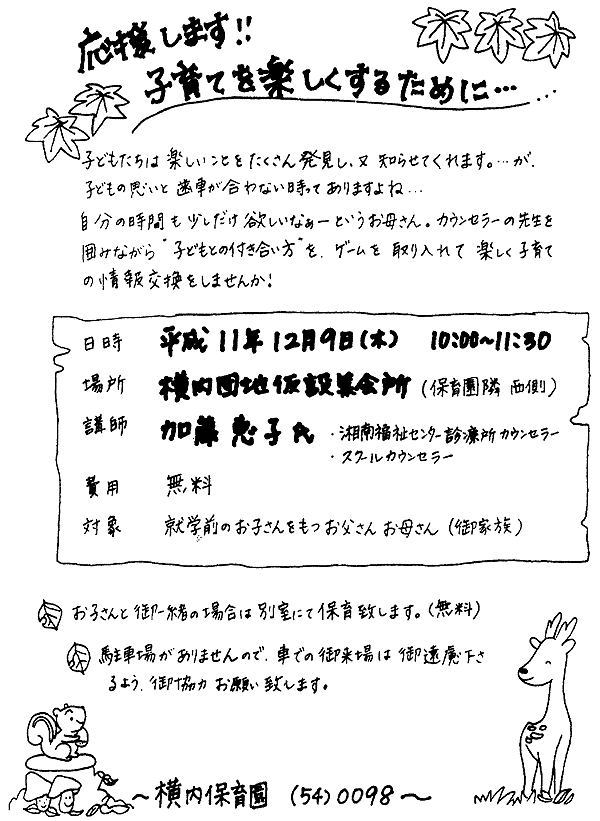 応援します!!
子育てを楽しくするために…
子どもたちは楽しいことをたくさん発見し、又知らせてくれます。…が、
子どもの思いと歯車が合わない時ってありますよね…
自分の時間も少しだけ欲しいなぁーというお母さん。カウンセラーの先生を
囲みながら"子どもとの付き合い方"を、ゲームを取り入れて楽しく子育て
の情報交換をしませんか!
日時 平成11年12月9日(木) 10:00~11:30
場所 横内団地仮設集会所(保育園隣 西側)
講師 加藤恵子氏 ・湘南福祉センター診療所カウンセラー
・スクールカウンセラー
費用 無料
対象 就学前のお子さんをもつお父さんお母さん(御家族)
お子さんと御一緒の場合は別室にて保育致します。(無料)
駐車場がありませんので、車での御来場は御遠慮下さ
るよう、御協力お願い致します。
~横内保育園 (54)0098~